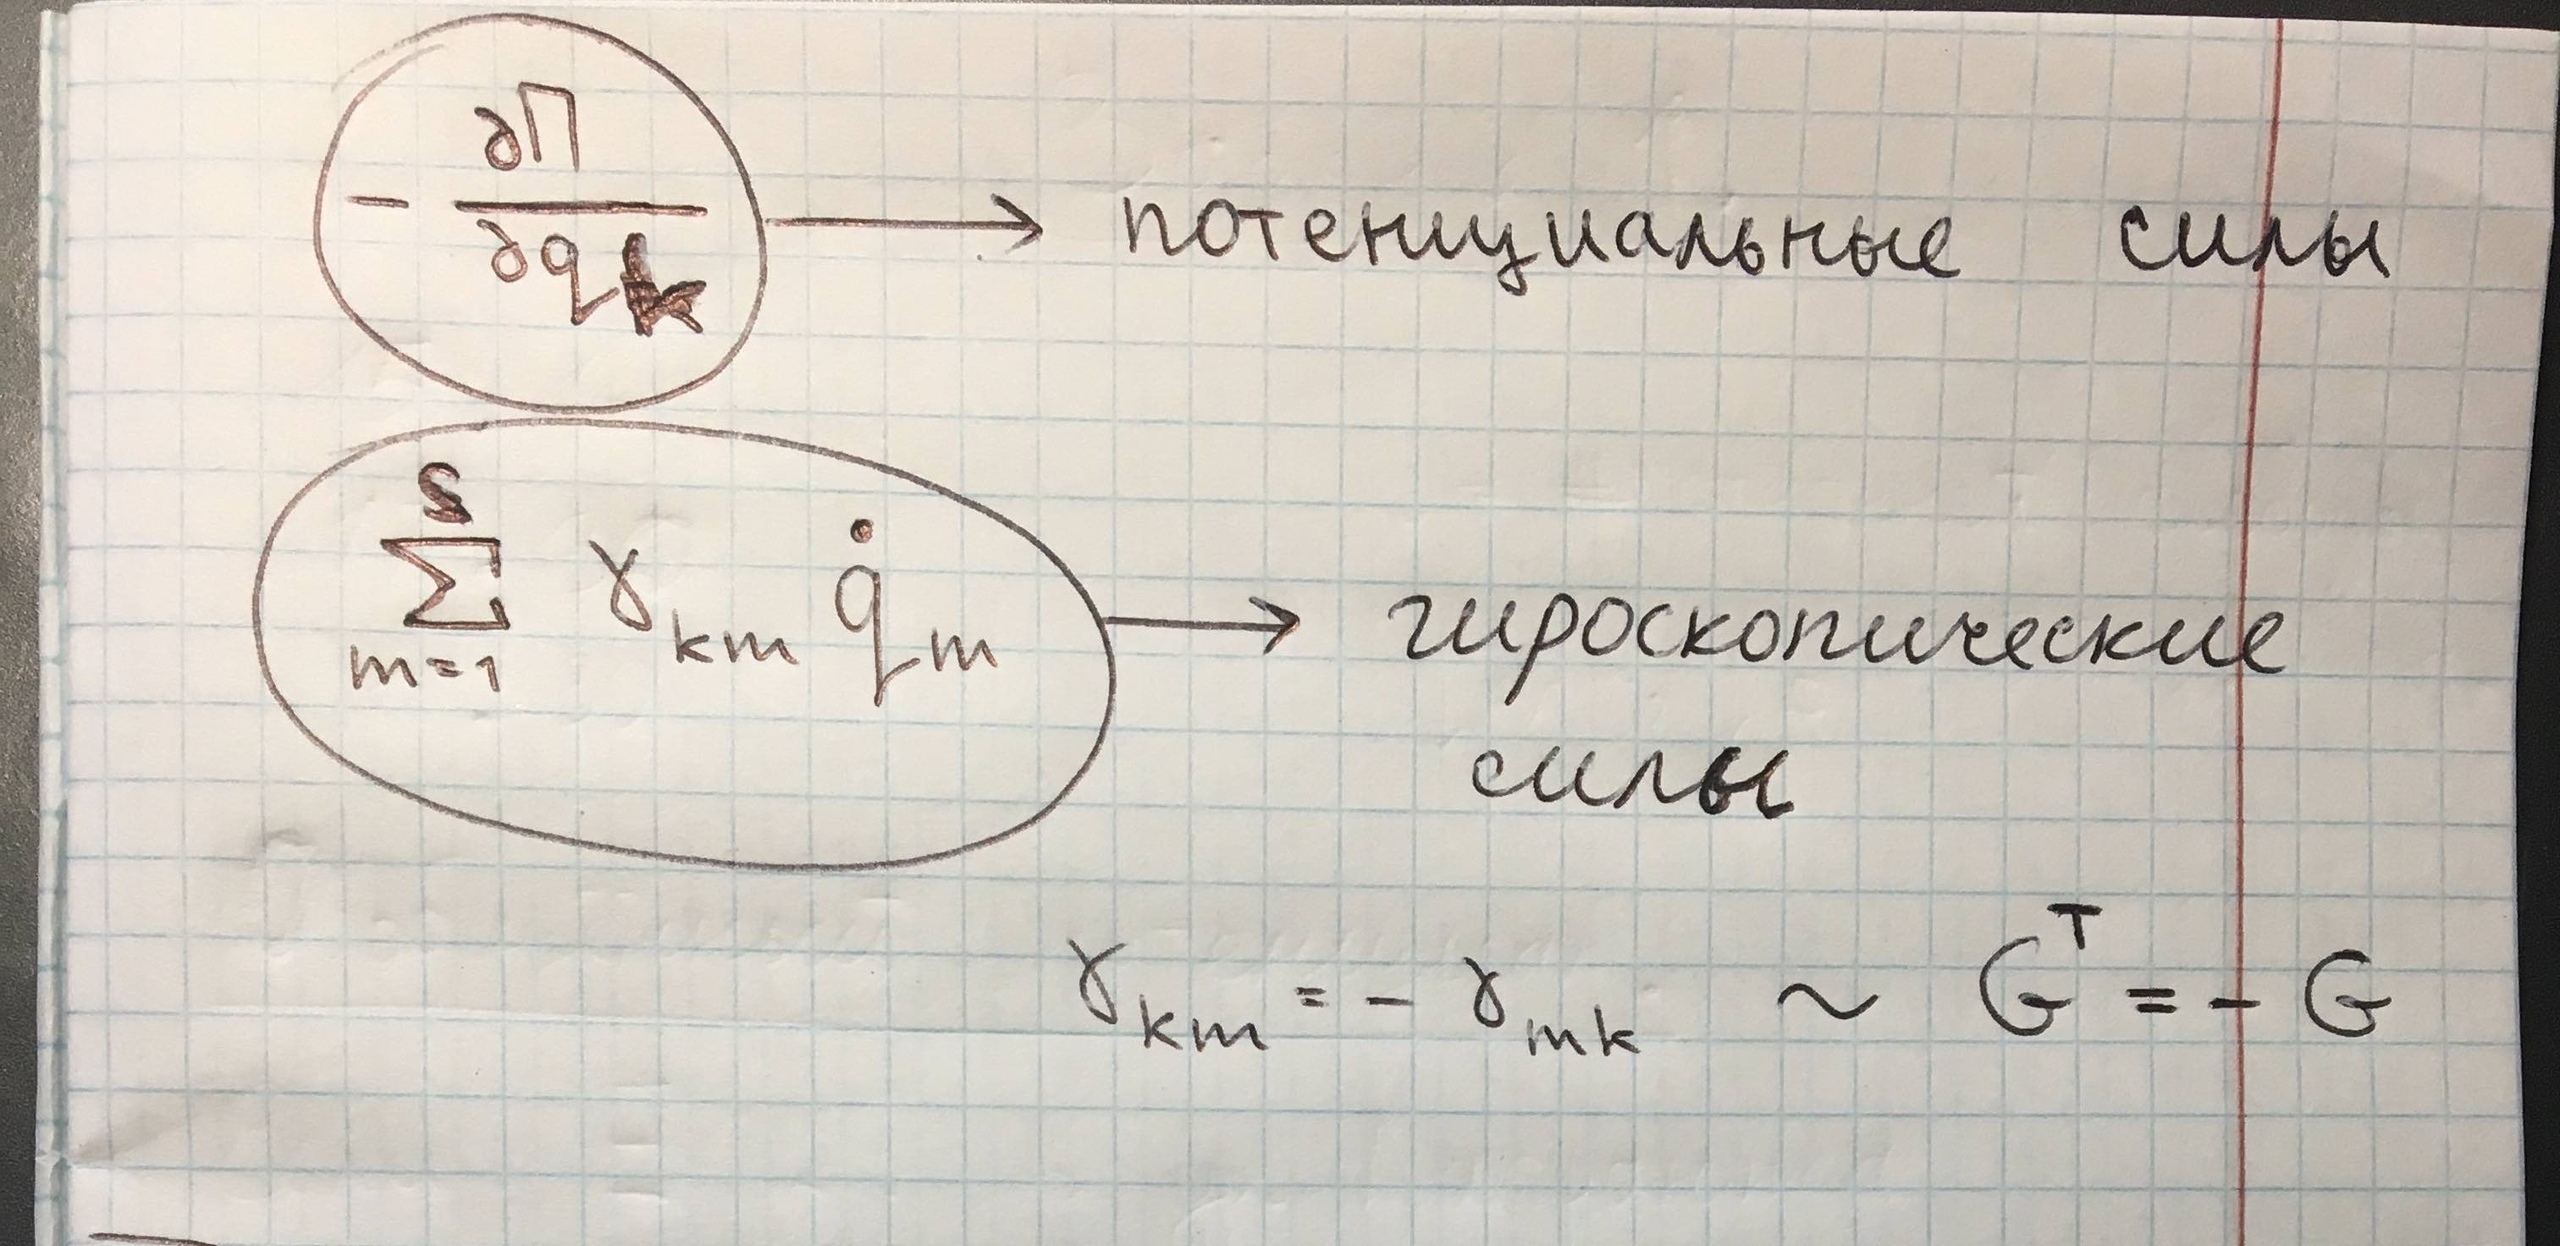 - ∂П/∂qₖ → потенциальные силы
∑ₘ₌₁ˢ γₖₘ q̇ₘ → гироскопические
силы
γₖₘ = - γₘₖ ~ Gᵀ = - G